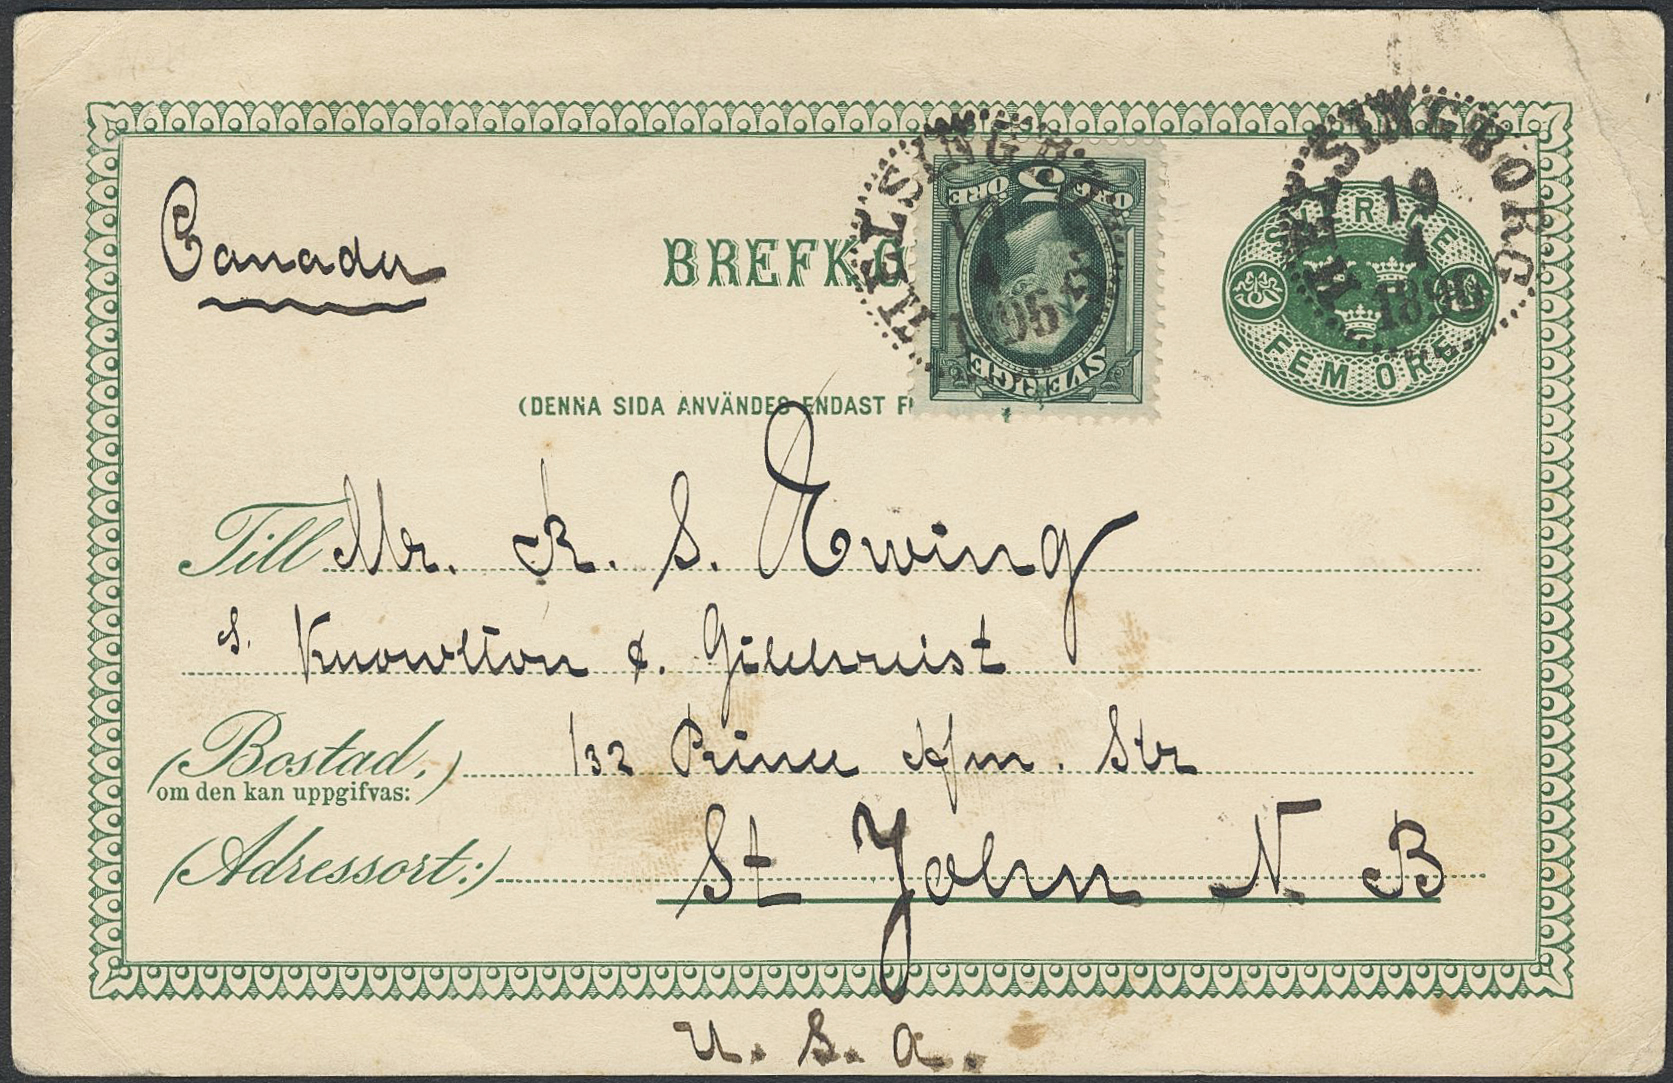 Canada
BREFKO
(DENNA SIDA ANVÄNDES ENDAST F
5
ÖRE ÖRE
SVERGE
HELSINGB
4
1895
SVERIGE
FEM ÖRE
HELSINGBORG
19
4
1895
Till Mr. K. S. Ewing
s. Knowlton &. Gilchrist
(Bostad,) 132 Prince Wm. Str
om den kan uppgifvas:
(Adressort:) St John N. B
U. S. A.